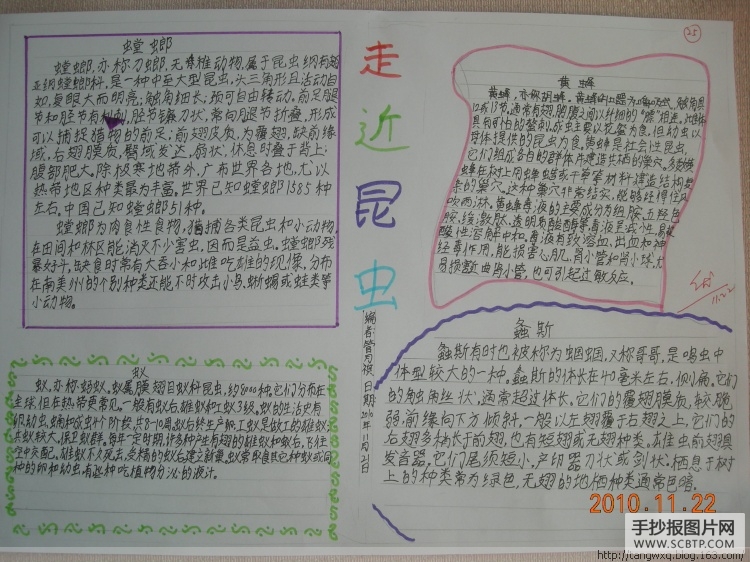 螳螂
螳螂,亦称刀螂,无脊椎动物。属于昆虫纲有翅
亚纲螳螂科,是一种中至大型昆虫,头三角形且活动自
如,复眼大而明亮;触角细长;颈可自由转动。前足腿
节和胫节有利刺,胫节镰刀状,常向腿节折叠,形成
可以捕捉猎物的前足;前翅皮质,为覆翅,缺前缘
域,后翅膜质,臀域发达,扇状,休息时叠于背上;
腹部肥大。除极寒地带外,广布世界各地,尤以
热带地区种类最为丰富。世界已知螳螂1585种
左右。中国已知螳螂51种。
螳螂为肉食性食物,猎捕各类昆虫和小动物,
在田间和林区能消灭不少害虫,因而是益虫。螳螂残
暴好斗,缺食时常有大吞小和雌吃雄的现像。分布
在南美州的个别种类还能不时攻击小鸟、蜥蜴或蛙类等
小动物。
蚁
蚁,亦称蚂蚁。蚁属膜翅目蚁科昆虫,约8000种,它们分布在
全球,但在热带更常见。一般有蚁后、雄蚁和工蚁3级。蚁的生活史有
卵、幼虫、蛹和成虫4个阶段,共8-10周。蚁后终生产卵,工蚁是做工的雌蚁,
兵蚁较大,保卫蚁群。每年一定时期,许多种产生有翅的雄蚁和蚁后,飞往
空中交配。雄蚁不久死去,受精的蚁后建立新巢。蚁常取食其它种蚁或同
种的卵和幼虫,有些种吃植物分泌的液汁。
走近昆虫
编者:管
日期:2010年11月21日
25
黄蜂
黄蜂,亦称胡蜂。
12或13节。通常有翅,胸腹之间以纤细的“腰”相连。雌体
具有可怕的螫刺。成虫主要以花蜜为食,但幼虫以
母体提供的昆虫为食。黄蜂是社会性昆虫,
它们组成各自的群体并建造共栖的巢穴。多数
蜂在树上用蜂蜡或干草等材料建造结构复
杂的巢穴。这种巢穴非常结实,能够经得住风
吹雨淋。黄蜂毒液的主要成分为组胺、五羟色
胺、缓激肽、透明质酸酶等,毒液呈碱性,易被
酸性溶解中和。毒液有致溶血、出血和神
经毒作用,能损害心肌、肾小管和肾小球,尤
易损害曲肾小管,也可引起过敏反应。
11.22
螽斯
螽斯有时也被称为蝈蝈,又称哥哥,是鸣虫中
体型较大的一种。螽斯的体长在40毫米左右。侧扁。它们
的触角丝状,通常超过体长。它们的覆翅膜质,较脆
弱,前缘向下方倾斜,一般以左翅覆于右翅之上,它们的
右翅多稍长于前翅,也有短翅或无翅种类。雄虫前翅具
发音器,它们尾须短小,产卵器刀状或剑状。栖息于树
上的种类常为绿色,无翅的地栖种类通常色暗。
2010.11.22
手抄报图片网
WWW.SCBTP.COM
http://tangwxq.blog.163.com/